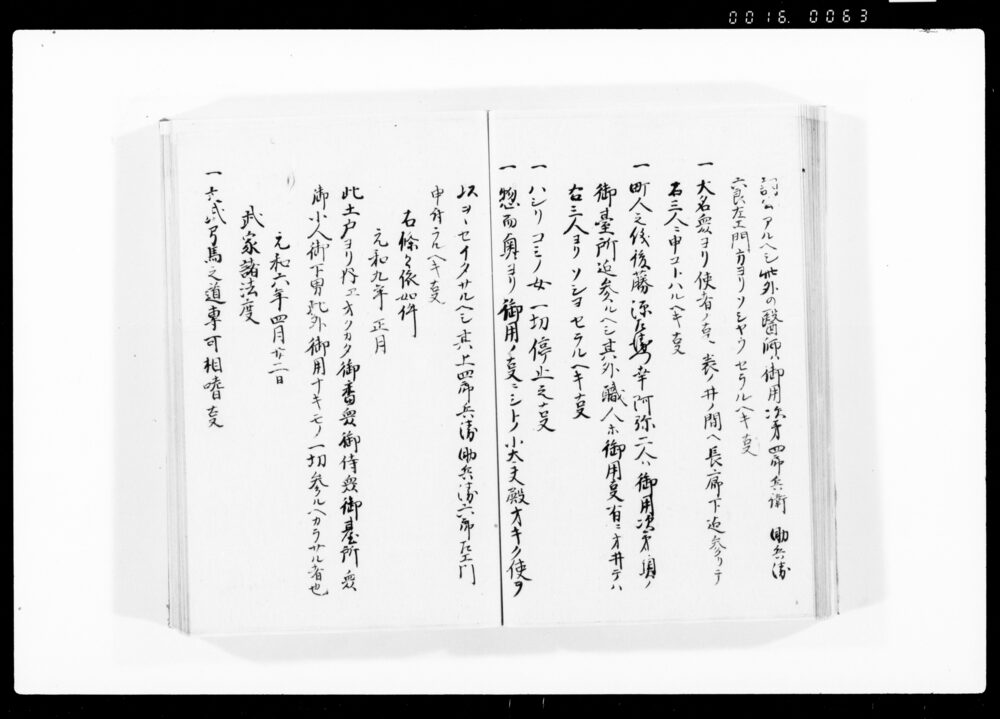 0016.0063
アルヘシ此外の醫師ハ御用次第四郎兵衛 助兵衛
六郎左エ門方ヨリソシヤウセラルヘキ事
一 大名衆ヨリ使者ノ事ハ表ノ井ノ間ヘ長廊下迄参リテ
右三人ニ申コトハルヘキ事
一 町人之後後藤源左衛門幸阿弥二人ハ御用次第奥ノ
御臺所迄参ルヘシ其外職人ホ御用事有ニオ井テハ
右三人ヨリソシヨセラルヘキ事
一 ハシリコミノ女一切停止之事
一 惣而奥ヨリ御用ノ事ニシトノ小大夫殿オキク使ヲ
以ヲーセイタサルヘシ其上四郎兵衛助兵衛六郎左エ門
申付ラルヘキ事
右條々依如件
元和九年 正月
此土戸ヨリ内エオクカタ御番衆御侍衆御臺所衆
御小人御下男此外御用ナキモノ一切参ルヘカラサル者也
元和六年四月廿二日
武家諸法度
一 文武弓馬之道専可相嗜事